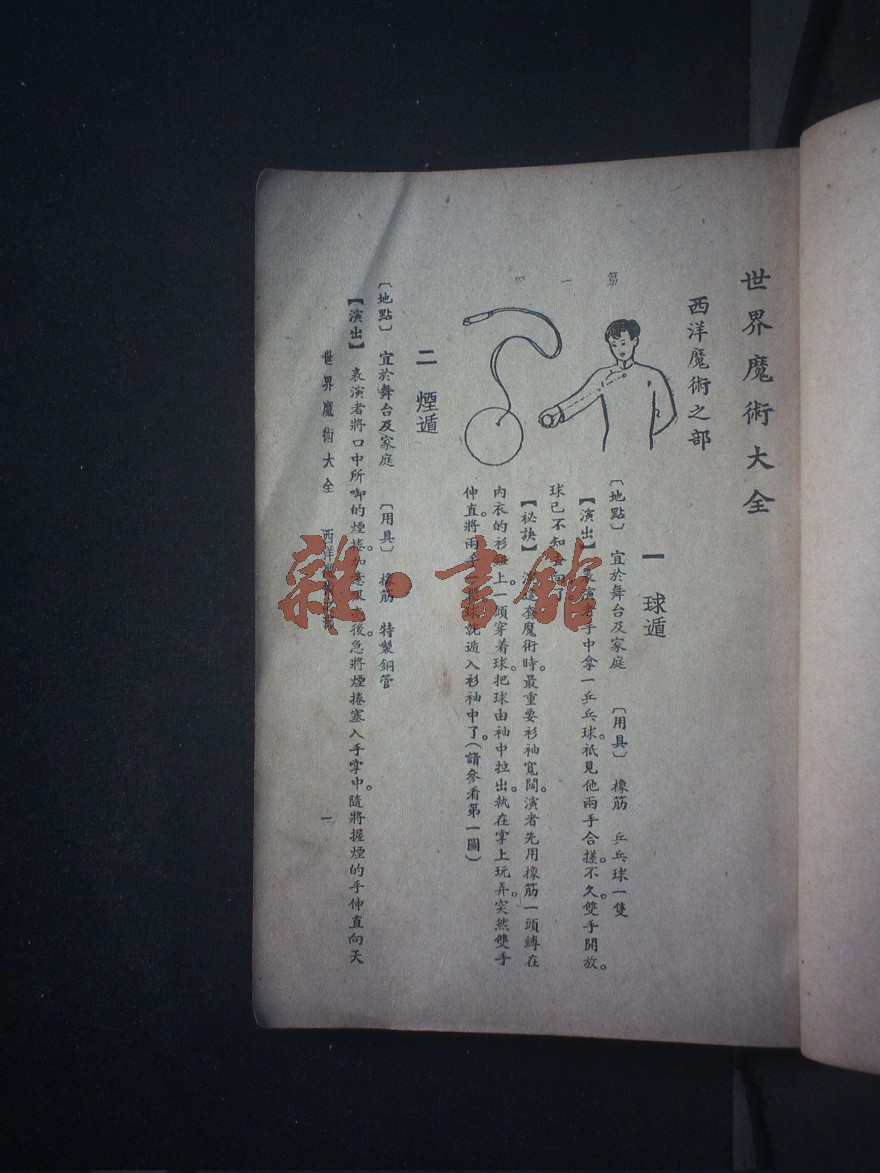 世界魔術大全
西洋魔術之部
第一圖
一 球遁
〔地點〕 宜於舞台及家庭 〔用具〕 橡筋 乒乓球一隻
【演出】 表演者手中拿一乒乓球。祇見他兩手合搓。不久。雙手開放。
球已不知去向
【秘訣】 演這套魔術時。最重要衫袖寬闊。演者先用橡筋一頭縛在
內衣的衫 上。一頭穿着球。把球由袖中拉出。執在掌上玩弄。突然雙手
伸直。將兩手 球就遁入衫袖中了。(請參看第一圖)
二 煙遁
〔地點〕 宜於舞台及家庭 〔用具〕 橡筋 特製銅管
【演出】 表演者將口中所啣的煙捲。加意吸 後。急將煙捲塞入手掌中。隨將握煙的手伸直向天
世界魔術大全 西洋魔術之部 一
雜·書館